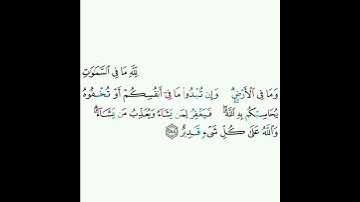 لِّلَّهِ مَا فِي ٱلسَّمَٰوَٰتِ
وَمَا فِي ٱلْأَرْضِۗ وَإِن تُبْدُوا۟ مَا فِىٓ أَنفُسِكُمْ أَوْ تُخْفُوهُ
يُحَاسِبْكُم بِهِ ٱللَّهُۖ فَيَغْفِرُ لِمَن يَشَآءُ وَيُعَذِّبُ مَن يَشَآءُۗ
وَٱللَّهُ عَلَىٰ كُلِّ شَىْءٍ قَدِيرٌ ۝٢٨٤